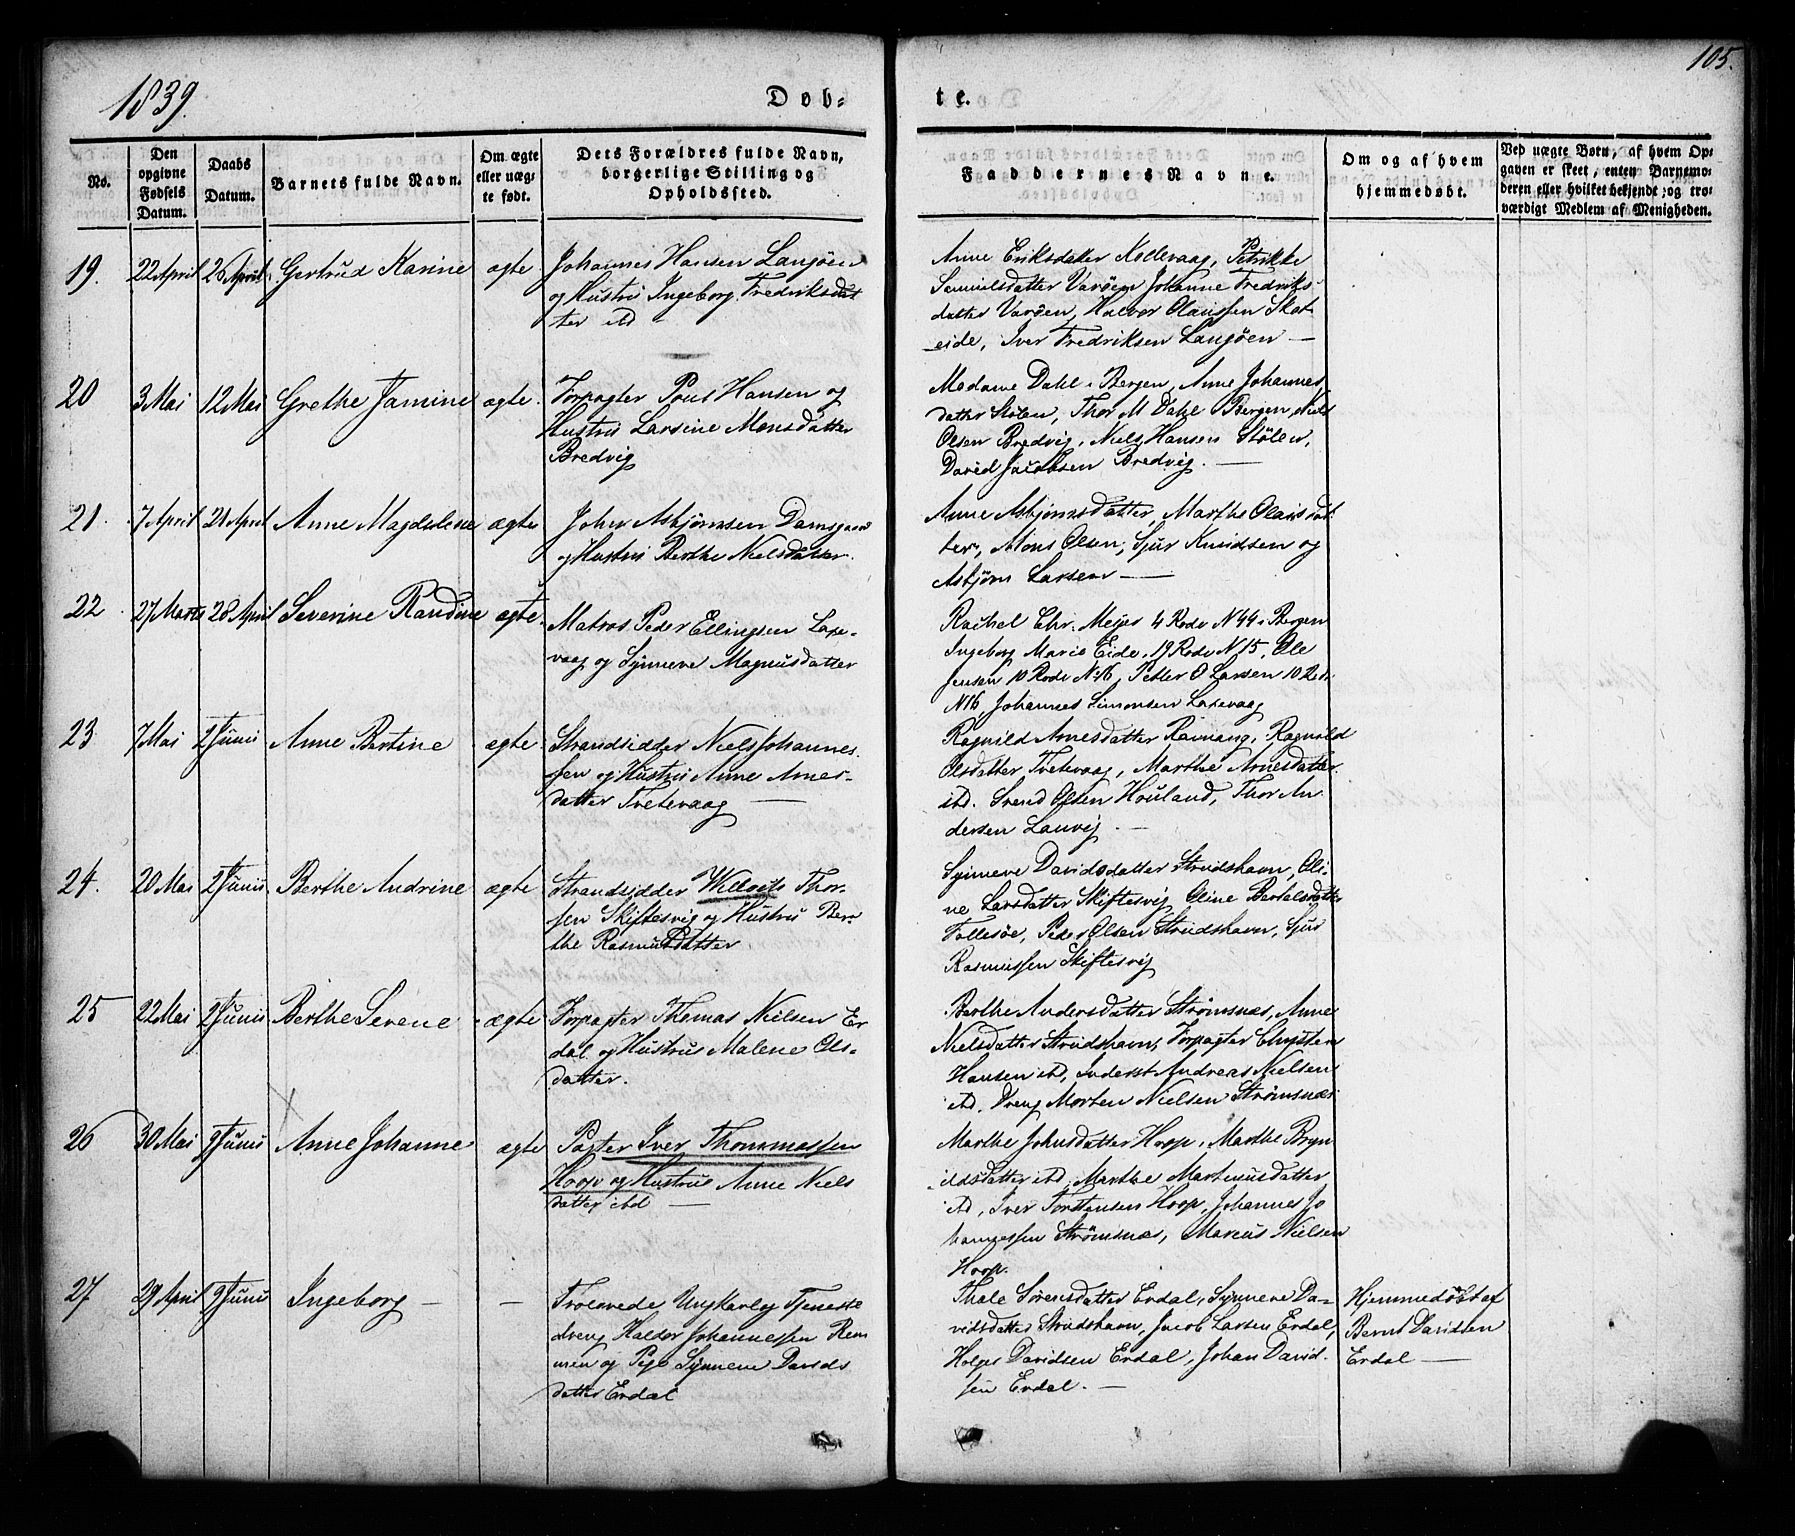 105.
1839.
Døb-
te.
No.
Den
opgivne
Fødsels
Datum.
Daabs
Datum.
Barnets fulde Navn.
Om ægte
eller uæg-
te født.
Dets Forældres fulde Navn,
borgerlige Stilling og
Opholdssted.
Faddernes Navne.
Om og af hvem
hjemmedøbt.
Ved uægte Børn, af hvem Op-
gaven er skeet, enten Barnemo-
deren eller hvilket bekjendt og tro-
værdigt Medlem af Menigheden.
19. 22 April 26 April Gertrud Karine ægte
Johannes Hansen Langøen
og Hustru Ingeborg Fredriksdat
ter ibd
Anne Eriksdatter Kollevaag, Petrikke
Samuelsdatter Varøen Johanne Fredriks-
datter Varøen, Halvor Olaussen Skot-
eide, Iver Fredriksen Langøen
20 3 Mai 12 Mai Grethe Jamine ægte
Forpagter Poul Hansen og
Hustru Larsine Monsdatter
Bredvig
Madame Dahl i Bergen, Anne Johannes
datter Stølen, Thor M Dahl Bergen, Niels
Olsen Bredvig, Niels Hansen Stølen,
David Jacobsen Bredvig.
21. 7 April 21 April Anne Magdalene ægte
Johan Asbjørnsen Damsgaard
og Hustru Berthe Nielsdatter.
Anne Asbjørnsdatter, Marthe Olausdat
ter, Mons Olsen, Sjur Knudsen og
Asbjørn Larsen
22 27 Marts 28 April Severine Randine ægte.
Matros Peder Ellingsen Laxe-
vaag og Synneve Magnusdatter
Rachel Chr. Meyer 4 Rode N 44 i Bergen
Ingeborg Marie Eide. 19 Rode N 15, Ole
Jensen 10 Rode N. 16, Petter O Larsen 10 Rode
N 16, Johannes Simonsen Laxevaag
23 7 Mai 2 Junii Anne Bertine ægte
Strandsidder Niels Johannes
sen og Hustru Anne Arnes-
datter Tvetevaag
Ragnild Arnesdatter Ravnang, Ragnild
Olsdatter Tvetevaag, Marthe Arnesdatter
ibd. Svend Olsen Houland, Thor An
dersen Lauvig.
24. 20 Mai 2 Junii Berthe Andrine ægte
Strandsidder Willoch Thor-
sen Skiftesvig og Hustru Ber-
the Rasmusdatter.
Synneve Davidsdatter Strudshavn, Oli-
ne Larsdatter Skiftesvig Oline Bertelsdatter
Follesøe, Peder Olsen Strudshavn, Sjur
Rasmussen Skiftesvig
25 22 Mai 2 Junii Berthe Serene ægte
Forpagter Thomas Nielsen Er
dal og Hustru Malene Ols-
datter.
Berthe Andersdatter Strømsnæs, Anne
Nielsdatter Strudshavn, Forpagter Chrysten
Hansen ibd, Inderst Andreas Nielsen
ibd. Dreng Morten Nielsen Strømsnæs
26 30 Mai 9 Junii Anne Johanne ægte
Pagter Iver Thommassen
Hoop og Hustrue Anne Niels
datter ibd
Marthe Johnsdatter Hoop, Marthe Bryn
ildsdatter ibd, Marthe Martinusdatter
ibd, Iver Torstensen Hoop, Johannes Jo
hannessen Strømsnæs, Marcus Nielsen
Hoop.
27 29 April 9 Junii Ingeborg
Trolovede Ungkarl og Tjeneste
dreng Haldor Johannessen Rem
men og Pige Synneve Davids
datter Erdal
Thale Sørensdatter Erdal, Synneve Da-
vidsdatter Strudshavn, Jacob Larsen Erdal,
Holger Davidsen Erdal, Johan David-
sen Erdal.
Hjemmedøbt af
Bernt Davidsen
Erdal